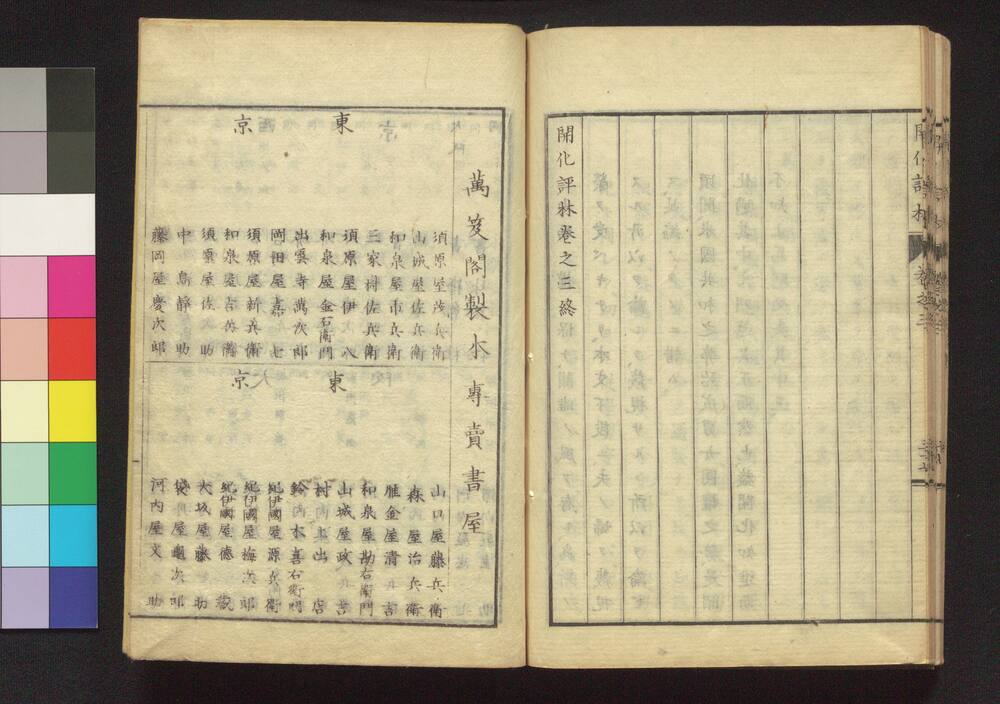 開化評林卷之三終
開化評林
卷之三
萬笈閣製本專賣書屋
東京
須原屋茂兵衛
山城屋佐兵衛
和泉屋市兵衛
三家村佐兵衛
須原屋伊八
和泉屋金右衛門
出雲寺萬次郎
岡田屋嘉七
須原屋新兵衛
和泉屋吉兵衛
須原屋佐助
中島靜助
藤岡屋慶次郎
東京
山口屋藤兵衛
森屋治兵衛
雁金屋清吉
和泉屋勘右衛門
山城屋政吉
村上出店
鈴木喜右衛門
紀伊國屋源兵衛
紀伊國屋梅次郎
紀伊國屋德藏
大坂屋藤助
袋屋龜次郎
河内屋文助